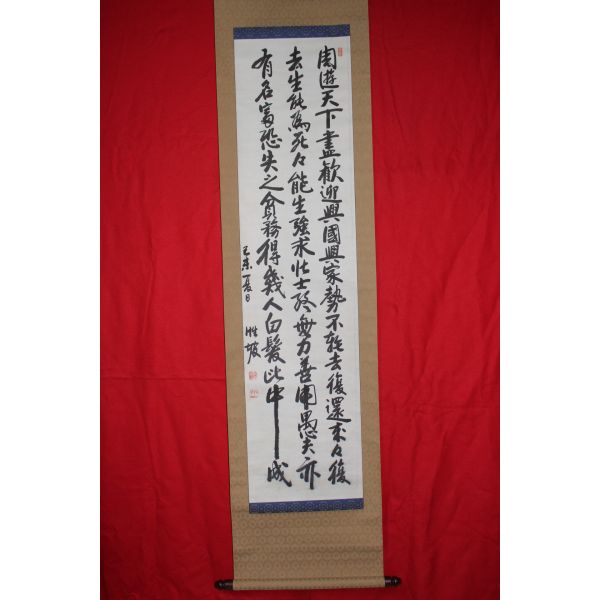 周遊天下盡歓迎興國興家勢不輕去復還来々復
去生能為死々能生強求壮士終無力善用愚夫亦
有名富恐失之貧務得幾人白髪此中成
己未夏日